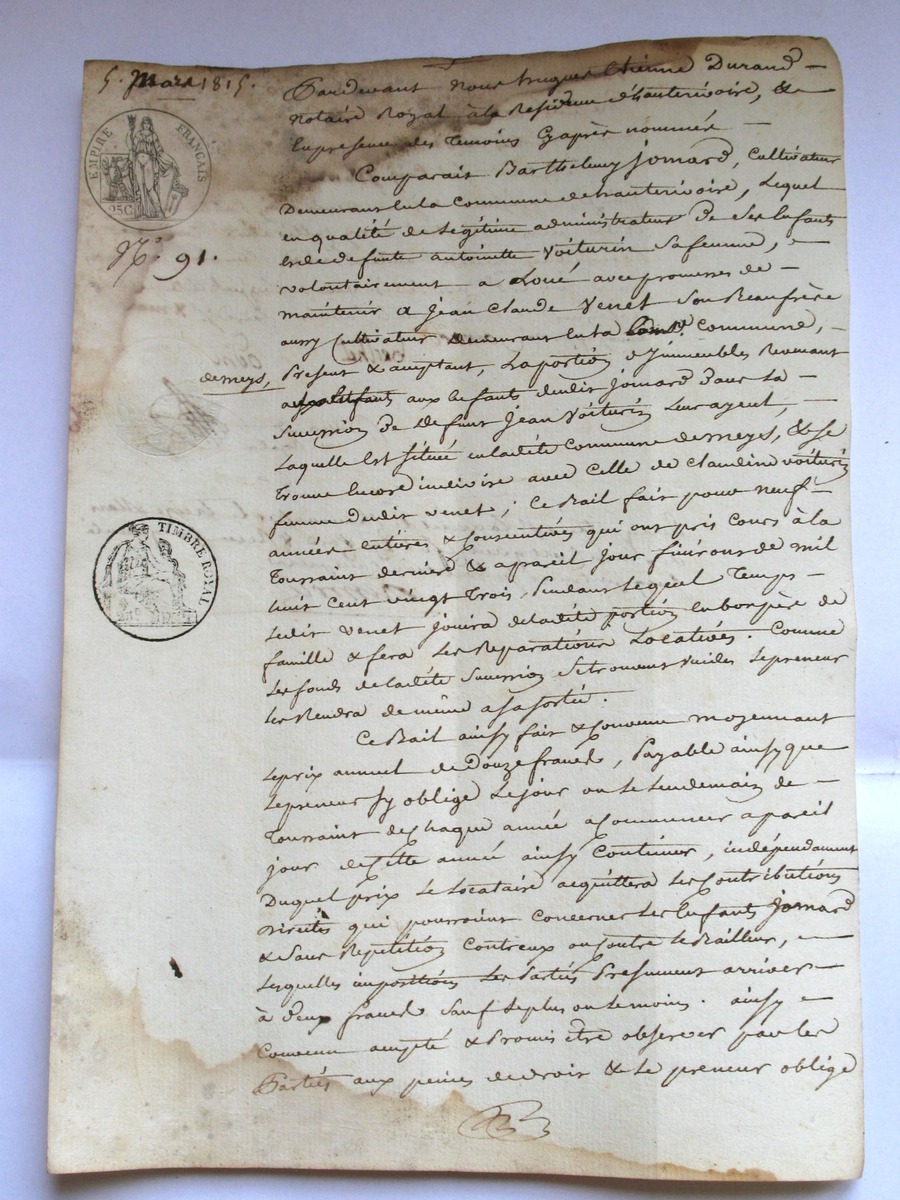 5. Mars 1815.
EMPIRE FRANÇAIS
25C
N.° 91.
de meys,
TIMBRE ROYAL
Pardevant Nous hugues Etienne Durand
Notaire Royal à la Residence d'hauterivoire, &
En presence des Temoins Cyaprès nommés
Comparait Barthelemy Jomard, Cultivateur
Demeurant En la Commune de hauterivoire, Lequel
en qualité de Légitime administrateur De ses Enfants
& de defunte antoinette Voiturin sa femme,
volontairement a Loué avec promesses de
maintenir a Jean Claude Venet son Beaufrère
aussy Cultivateur Demeurant En la Commune,
Présent & acceptant, La portion d'Immeubles Revenant
aux Enfants dudit Jomard Dans La
Succession De Defunt Jean Voiturin Leur ayeul,
Laquelle Est Située en ladite Commune de meys, & se
Trouve Encore indivise avec Celle de Claudine voiturin
femme dudit venet ; Ce Bail fait pour neuf
années Entières & Consecutives qui ont pris Cours à la
Toussaint dernière & a pareil Jour finiront de mil
huit Cent vingt Trois, pendant Lequel Temps
Ledit Venet Jouira de ladite portion En bon père de
famille & fera Les Reparations Locatives. Comme
Les fonds de ladite Succession se trouvent vuides Le preneur
Les Rendra de même a sa sortie.
Ce Bail ainsy fait & Convenu moyennant
Le prix annuel de Douze francs, Payable ainsy que
Le preneur s'y oblige Le jour ou Le Lendemain de
Toussaint de Chaque année a Commencer a pareil
jour de Cette année ainsy Continuer, indépendament
Duquel prix Le Locataire acquittera Les Contributions
Directes qui pourroient Concerner Les Enfants Jomard
& Sans Repetition Contreux ou Contre Le Bailleur,
Lesquelles impositions Les Parties Presument arriver
à deux francs Sauf Le plus ou Le moins. ainsy
Convenu accepté & Promis être observer par les
Parties aux peines de droit & Le preneur oblige